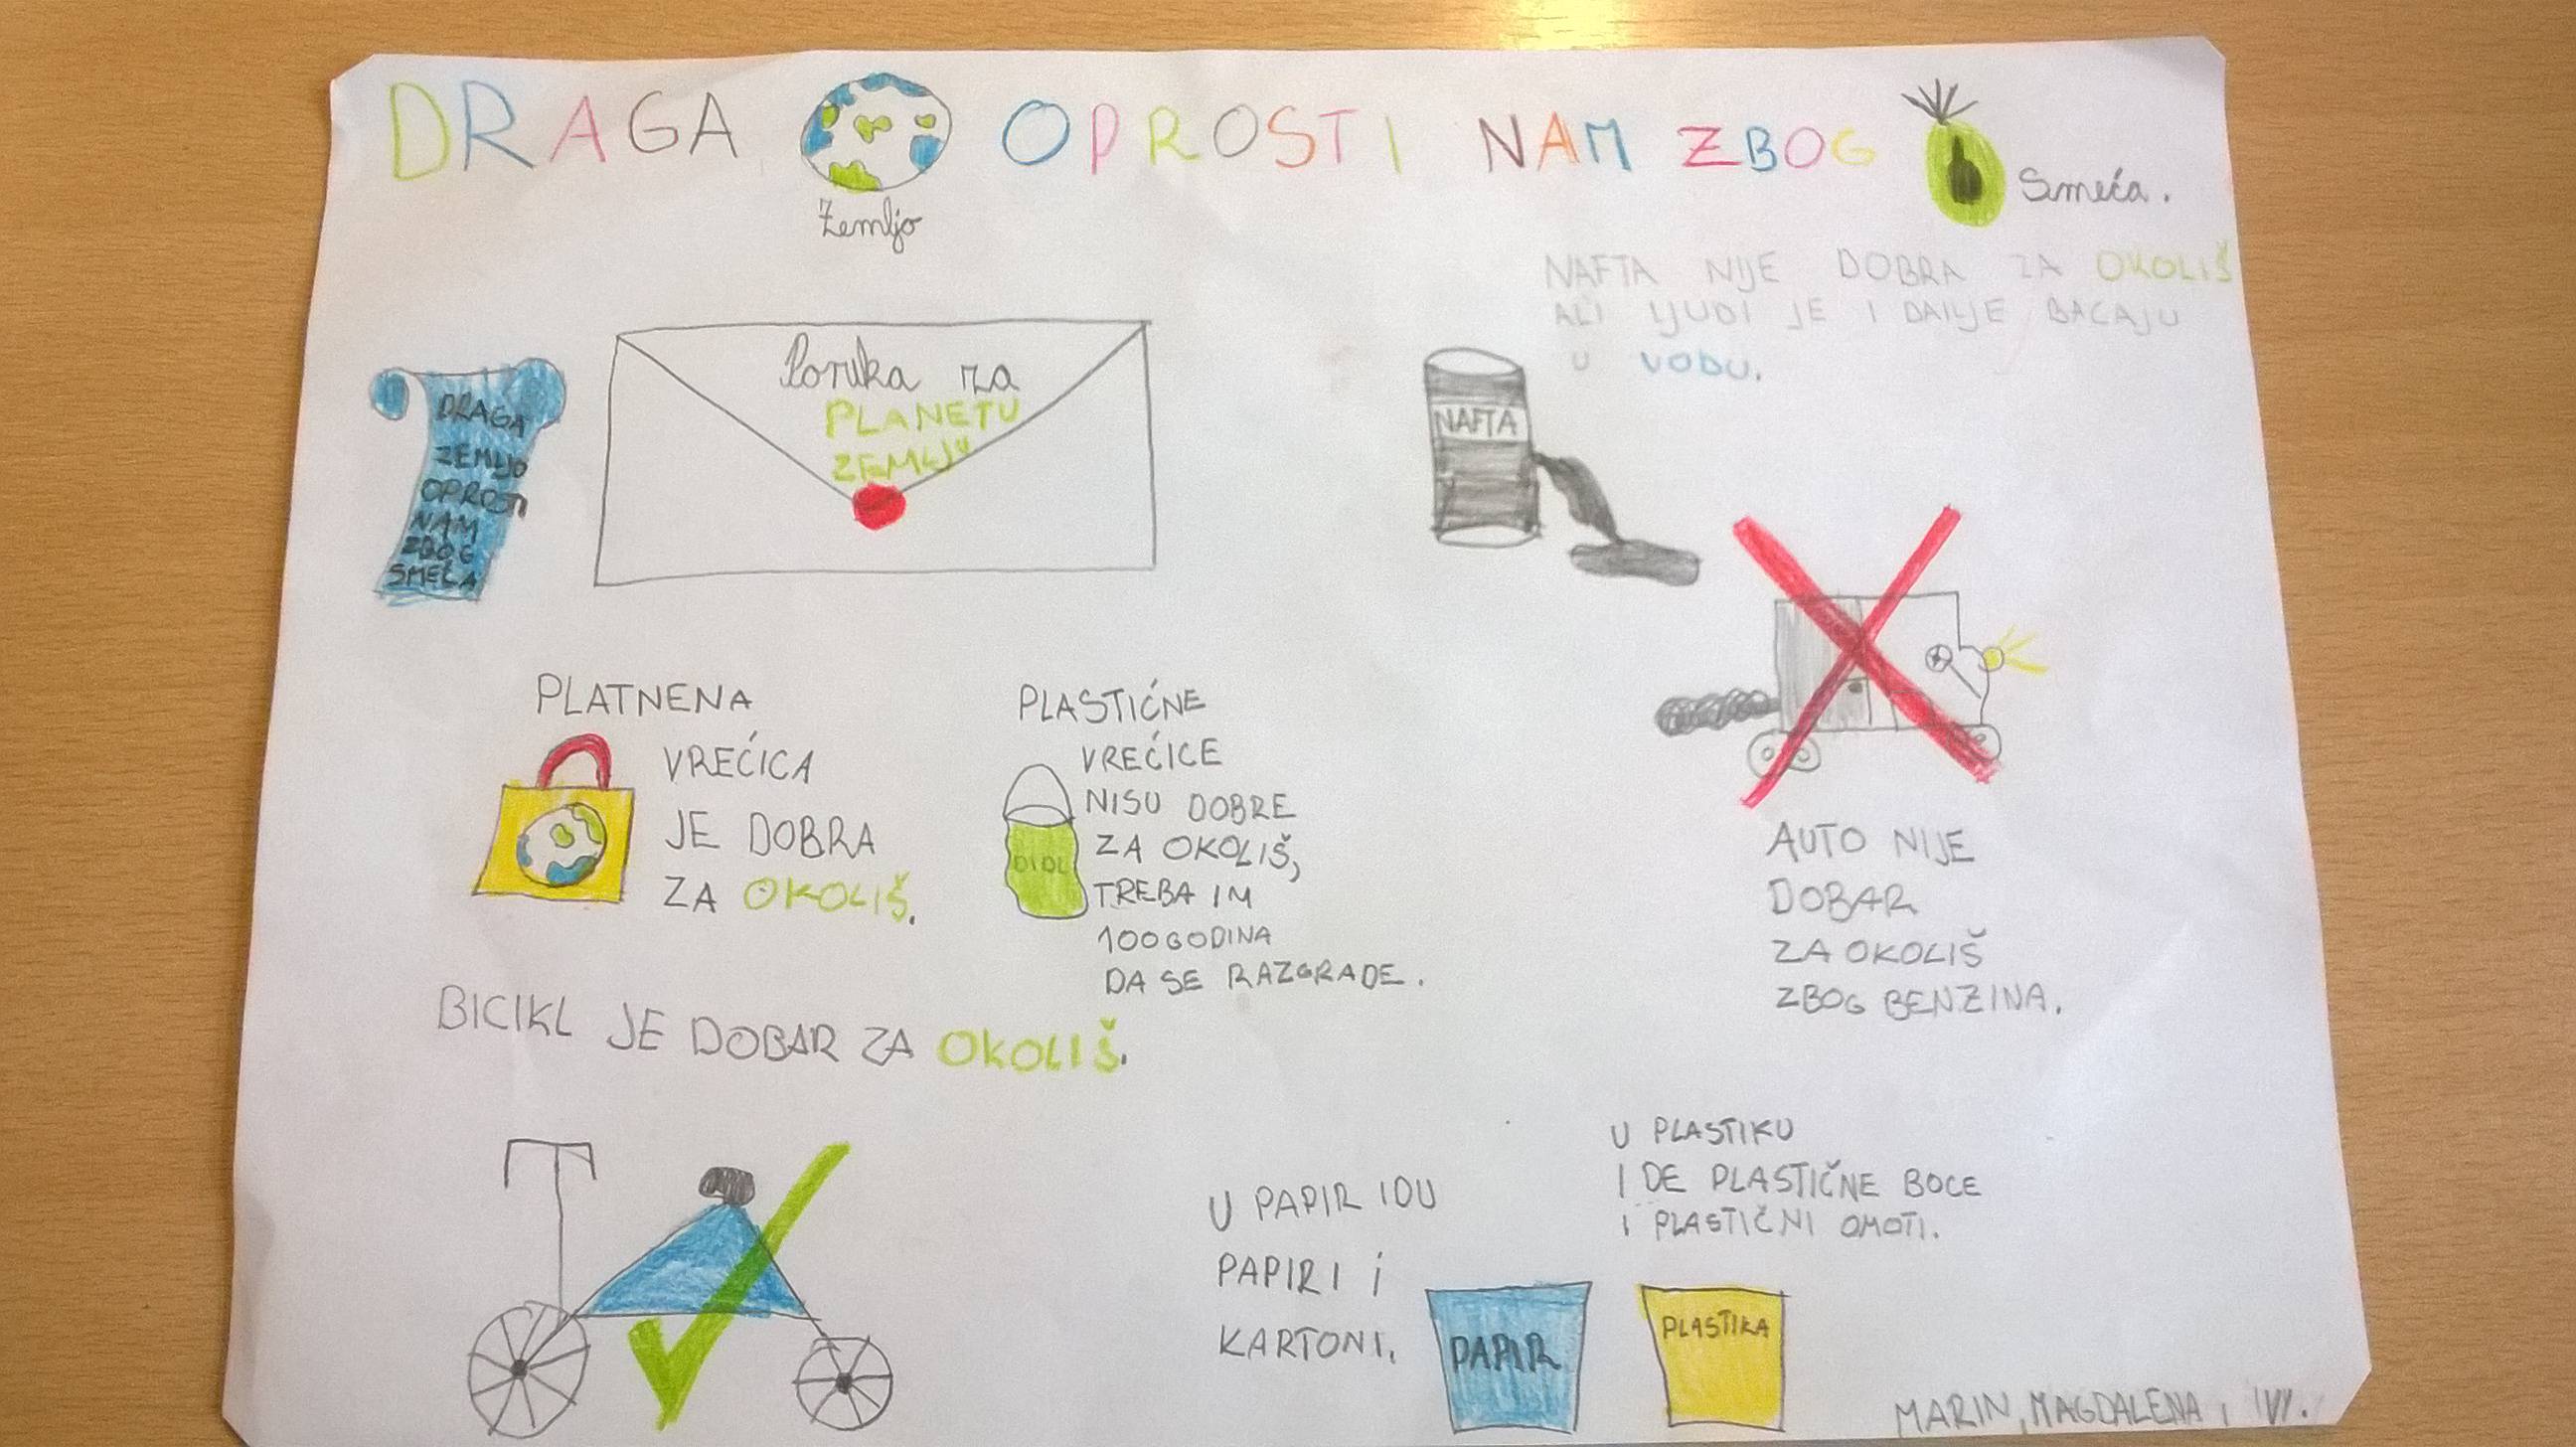 DRAGA OPROSTI NAM ZBOG
Zemljo
Smeća.
NAFTA NIJE DOBRA ZA OKOLIŠ
ALI LJUDI JE I DALJE BACAJU
U VODU.
Poruka za
PLANETU
ZEMLJU
DRAGA
ZEMLJO
OPROSTI
NAM
ZBOG
SMEĆA
NAFTA
PLATNENA
VREĆICA
JE DOBRA
ZA OKOLIŠ.
PLASTIĆNE
VREĆICE
NISU DOBRE
ZA OKOLIŠ,
TREBA IM
100 GODINA
DA SE RAZGRADE.
AUTO NIJE
DOBAR
ZA OKOLIŠ
ZBOG BENZINA.
BICIKL JE DOBAR ZA OKOLIŠ.
U PAPIR IDU
PAPIRI i
KARTONI.
U PLASTIKU
IDE PLASTIČNE BOCE
I PLASTIČNI OMOTI.
PAPIR
PLASTIKA
MARIN, MAGDALENA,